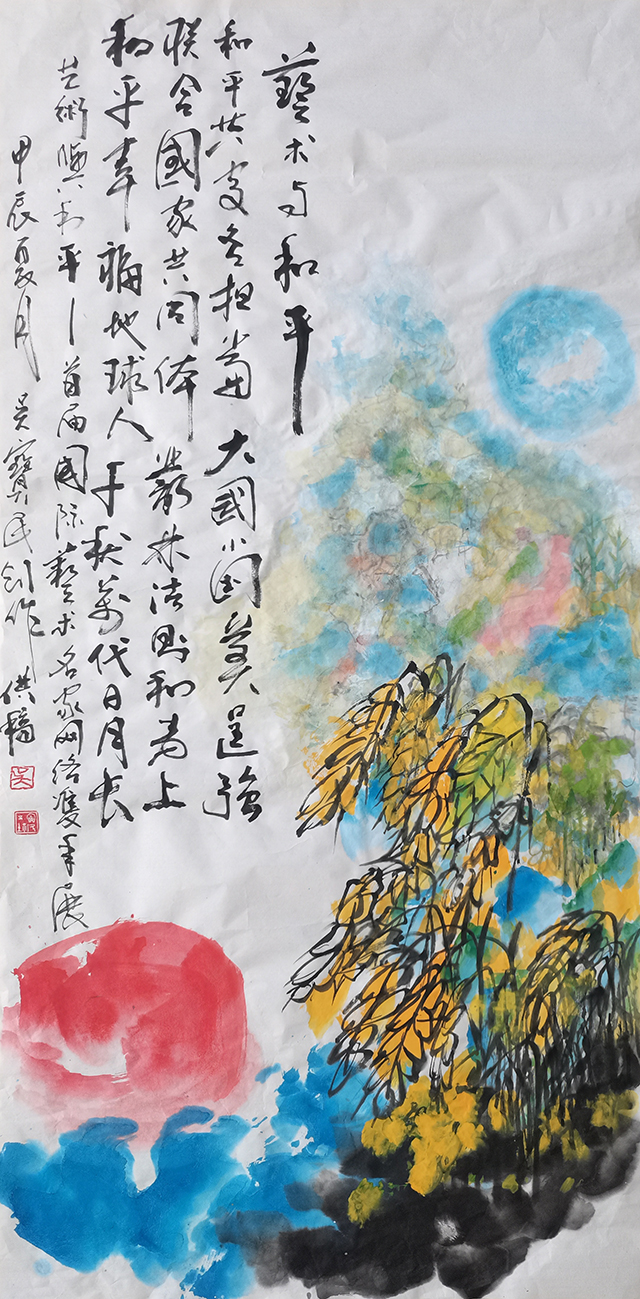 藝术与和平
和平共处各担当 大國小国莫逞强
联合國家共同体 叢林法则和为上
和平幸福地球人 千秋萬代日月长
艺術與和平—首届國际藝术名家网络雙年展
甲辰夏月 吴寶民创作供稿
吴